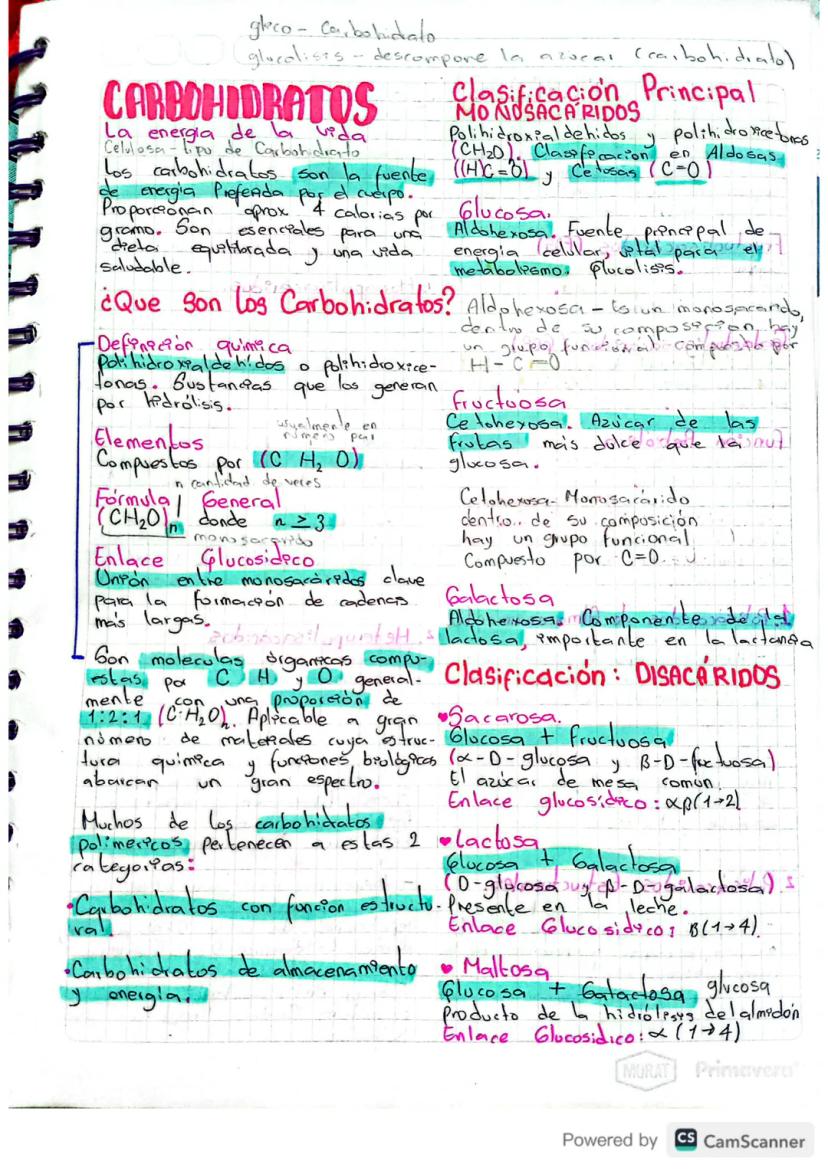 gluco - Carbohidato
glucolisis - descompone la azucar (carbohidrato)
CARBOHIDRATOS
La energía de la vida
Celulosa - tipo de Carbohidrato
Los carbohidratos son la fuente
de energía Preferida por el cuerpo.
Proporcionan aprox 4 calorias por
gramo. Son esenciales para una
dieta equilibrada y una vida
saludable.
¿Que son los Carbohidratos?
Definición química
Polihidroxialdehidos o polihidroxice-
tonas. Sustancias que los generan
por hidrólisis.
Elementos
usualmente en
número par
Compuestos por (C H₂ O)
n cantidad de veces
Fórmula General
(CH2O)n donde n ≥ 3
monosacarido
Enlace Glucosidico
Unión entre monosacáridos clave
para la formación de cadenas
más largas.
Son moleculas órganicas compu-
estas por C H y O general-
mente con una proporción de
1:2:1 (C:H2O). Aplicable a gran
número de materiales cuya estruc-
tura química y funciones biológicas
abarcan un gran espectro.
Muchos de los carbohidratos
polimericos pertenecen a estas 2
categorias:
• Carbohidratos con funcion estructu-
ral
• Carbohidratos de almacenamiento
y energía.
Clasificación Principal
MONOSACÁRIDOS
Polihidroxialdehidos y polihidroxicetonas
(CH2O). Clasificacion en Aldosas
((H)C=O) y Cetosas (C=O)
Glucosa.
Aldohexosa. Fuente principal de
energía celular, vital para el
metabolismo. Glucolisis.
Aldohexosa - Es un monosacarido,
dentro de su composicion hay
un grupo funcional compuesto por
H - C = O
Fructuosa
Cetohexosa. Azúcar de las
frutas más dulce que la
glucosa.
Cetohexosa - Monosacárido
dentro de su composición
hay un grupo funcional
Compuesto por C=O.
Galactosa
Aldohexosa. Componente de la
lactosa, importante en la lactancia
Clasificación: DISACÁRIDOS
♥Sacarosa.
Glucosa + Fructuosa
(α-D-glucosa y β-D-fructuosa)
El azúcar de mesa común.
Enlace glucosídico: αβ(1→2)
♥Lactosa
Glucosa + Galactosa
(D-glucosa y β-D-galactosa)
Presente en la leche.
Enlace Glucosidico: β(1→4)
♥ Maltosa
Glucosa + Galactosa glucosa
producto de la hidrólisis del almidón
Enlace Glucosidico: α (1→4)
MURAT Primavera
Powered by CS CamScanner